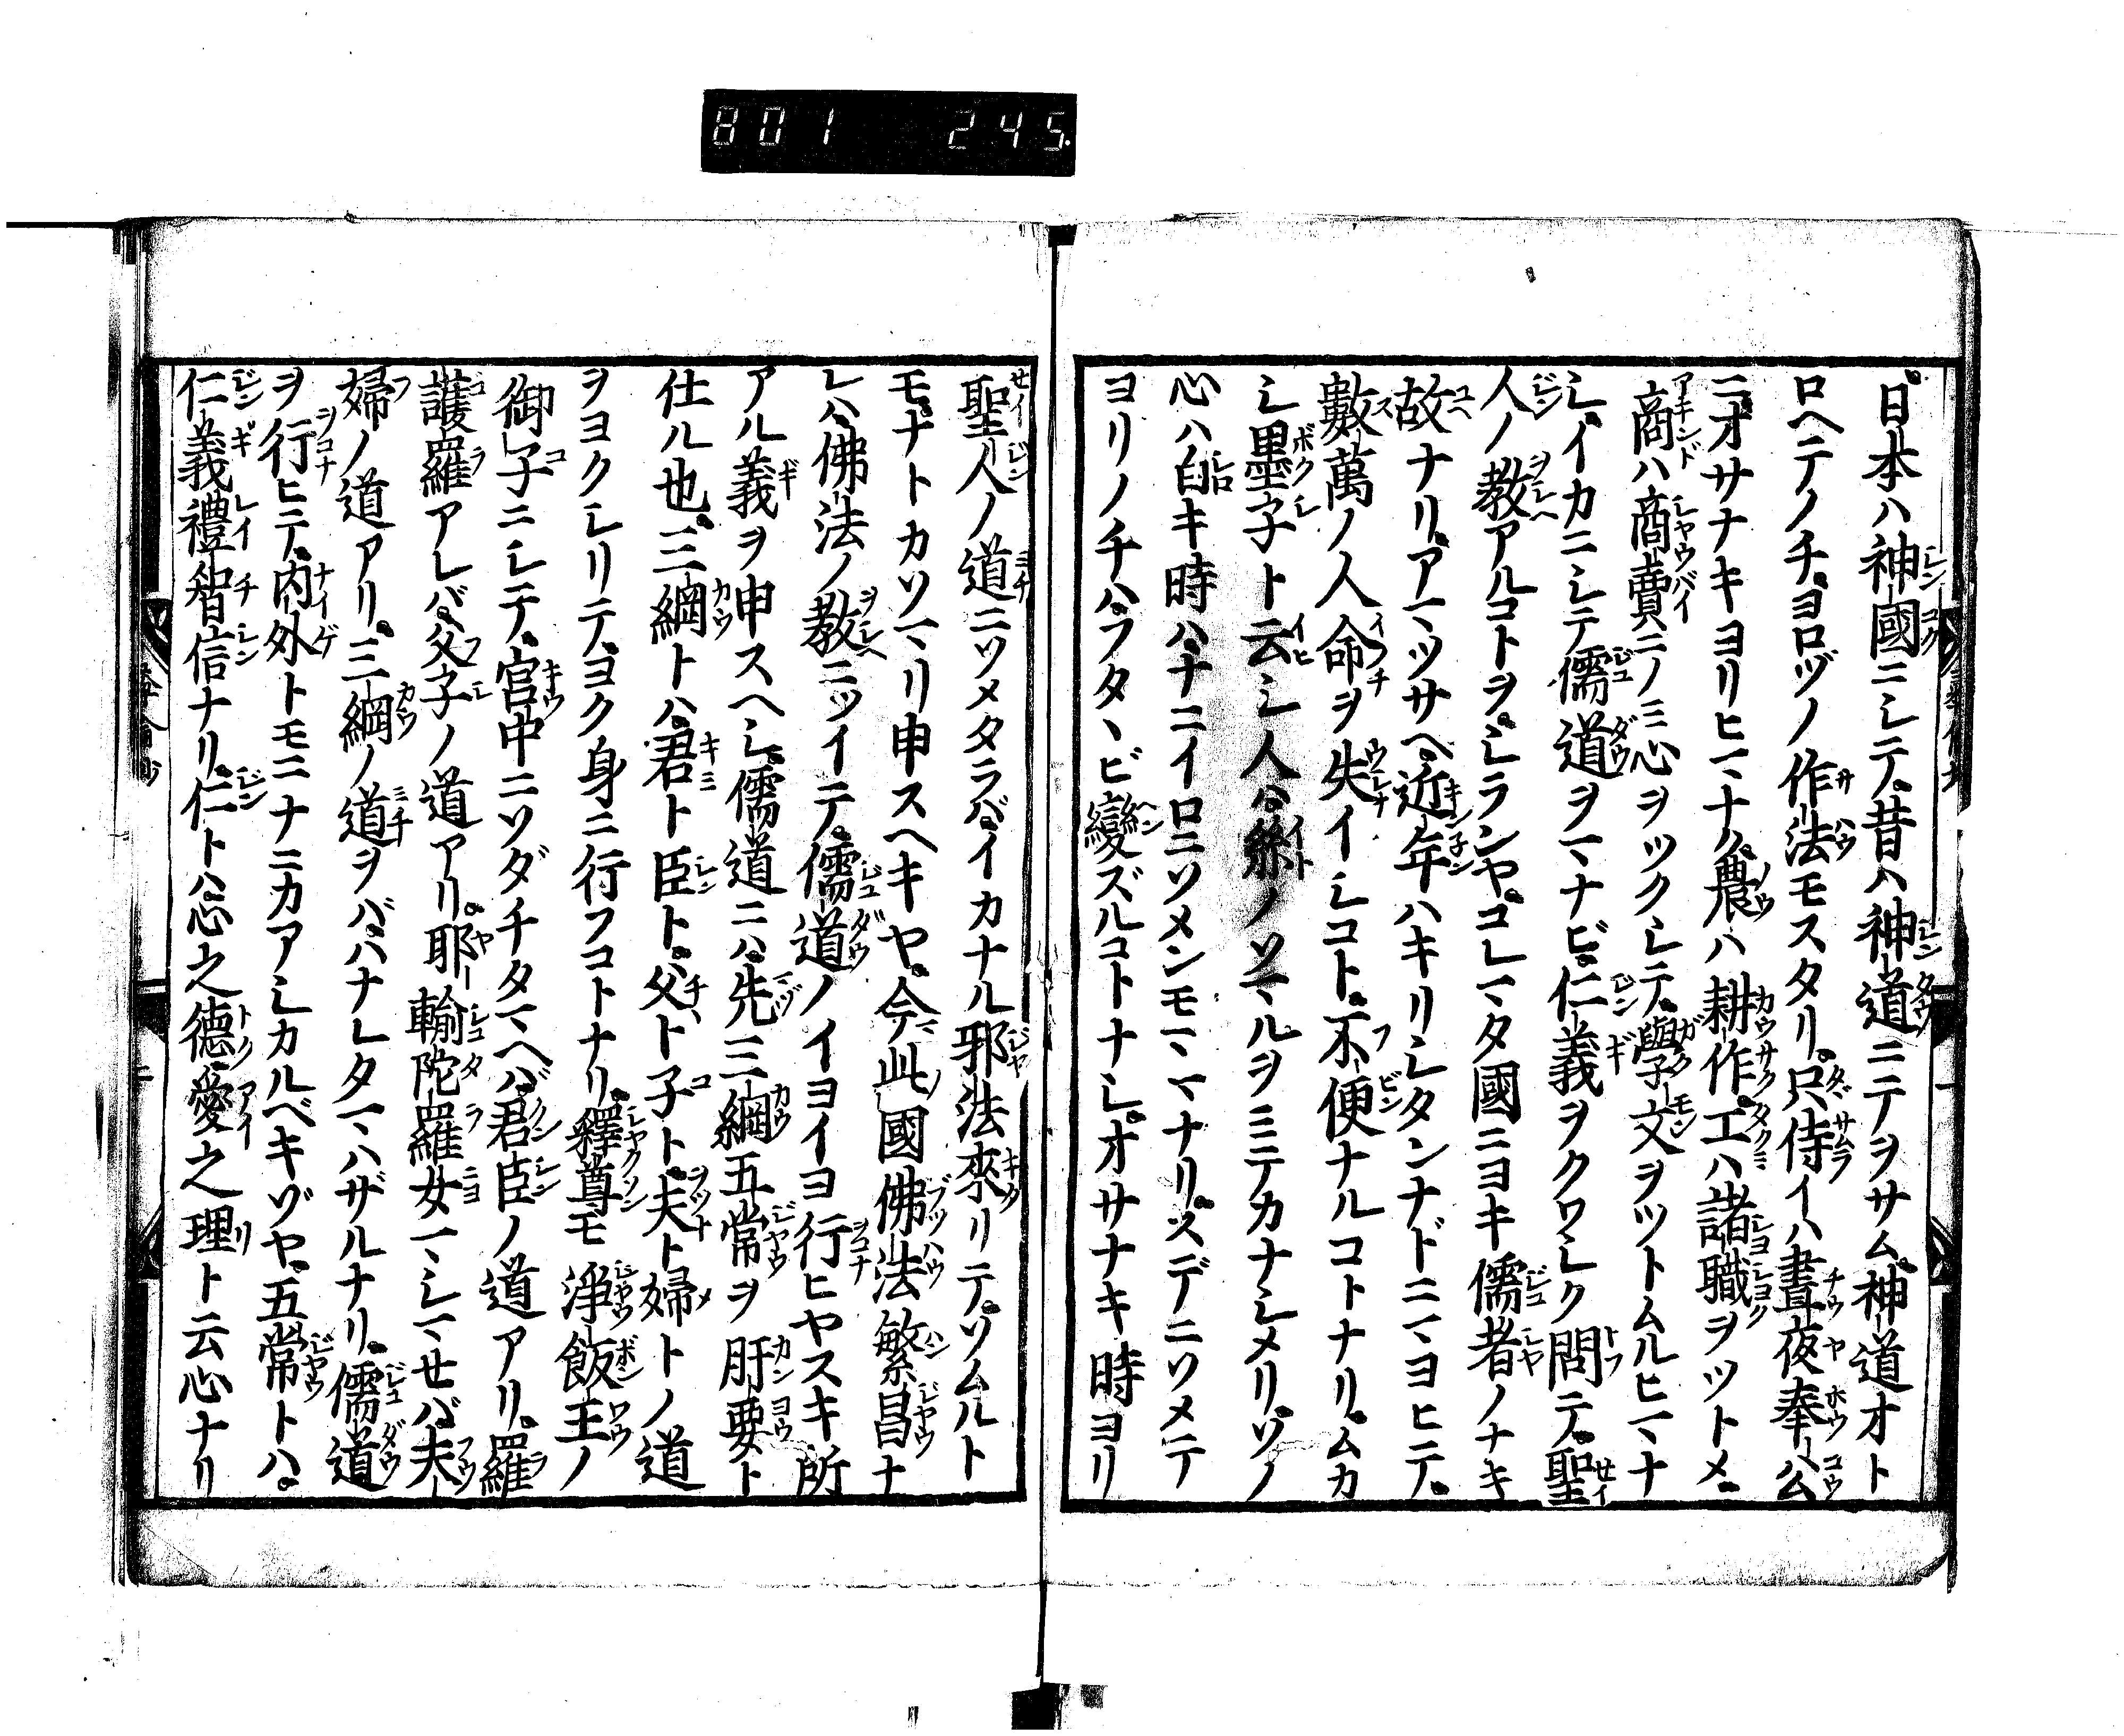 801 245.
日本ハ神國ニシテ。昔ハ神道ニテヲサム。神道オト
ロヘテノチ。ヨロヅノ作法モスタリ。只侍イハ晝夜奉公
ニ。オサナキヨリヒマナク。農ハ耕作。工ハ諸職ヲツトメ。
商ハ商賣ニノミ心ヲツクシテ。學文ヲツトムルヒマナ
シ。イカニシテ儒道ヲマナビ。仁義ヲクワシク問テ。聖
人ノ教アルコトヲ。シランヤ。コレマタ國ニヨキ儒者ノナキ
故ナリ。アマツサヘ。近年ハキリシタンナドニマヨヒテ。
數萬ノ人命ヲ失イシコト。不便ナルコトナリ。ムカ
シ墨子ト云シ人ハ。絲ノソマルヲミテカナシメリ。ソノ
心ハ白キ時ハ。ナニイロニソメンモマヽナリ。スデニソメテ
ヨリノチハ。フタヽビ變ズルコトナシ。オサナキ時ヨリ
聖人ノ道ニソメタラバ。イカナル邪法來リテ。ソムルト
モ。ナトカソマリ申スヘキヤ。今此國佛法繁昌ナ
レハ。佛法ノ教ニツイテ。儒道ノイヨイヨ行ヒヤスキ所
アル義ヲ申スヘシ。儒道ニハ。先三綱五常ヲ肝要ト
仕ル也。三綱トハ。君ト臣ト。父ト子ト。夫ト婦トノ道
ヲヨクシリテ。ヨク身ニ行フコトナリ。釋尊モ淨飯王ノ
御子ニシテ。宮中ニソダチタマヘバ。君臣ノ道アリ。羅
護羅アレバ。父子ノ道アリ。耶輸陀羅女マシマセバ。夫
婦ノ道アリ。三綱ノ道ヲバ。ハナレタマハザルナリ。儒道
ヲ行ヒテ。内外トモニナニカアシカルベキゾヤ。五常トハ。
仁義禮智信ナリ。仁トハ。心之德。愛之理ト云心ナリ